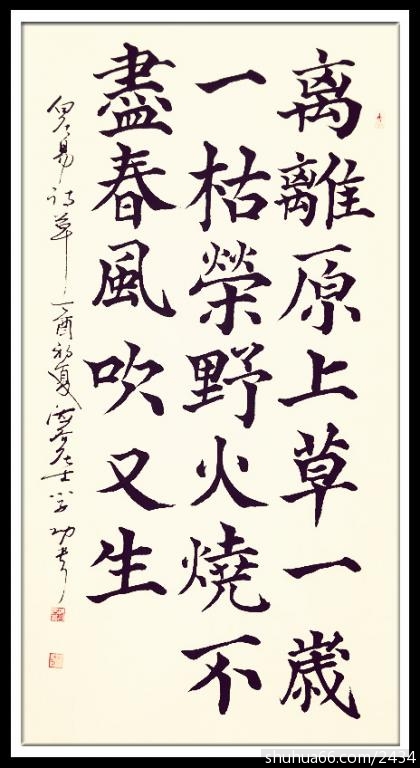 离離原上草一歲
一枯榮野火燒不
盡春風吹又生
白居易诗草 丁酉初夏 居士 功书
shuhua66.com/2434